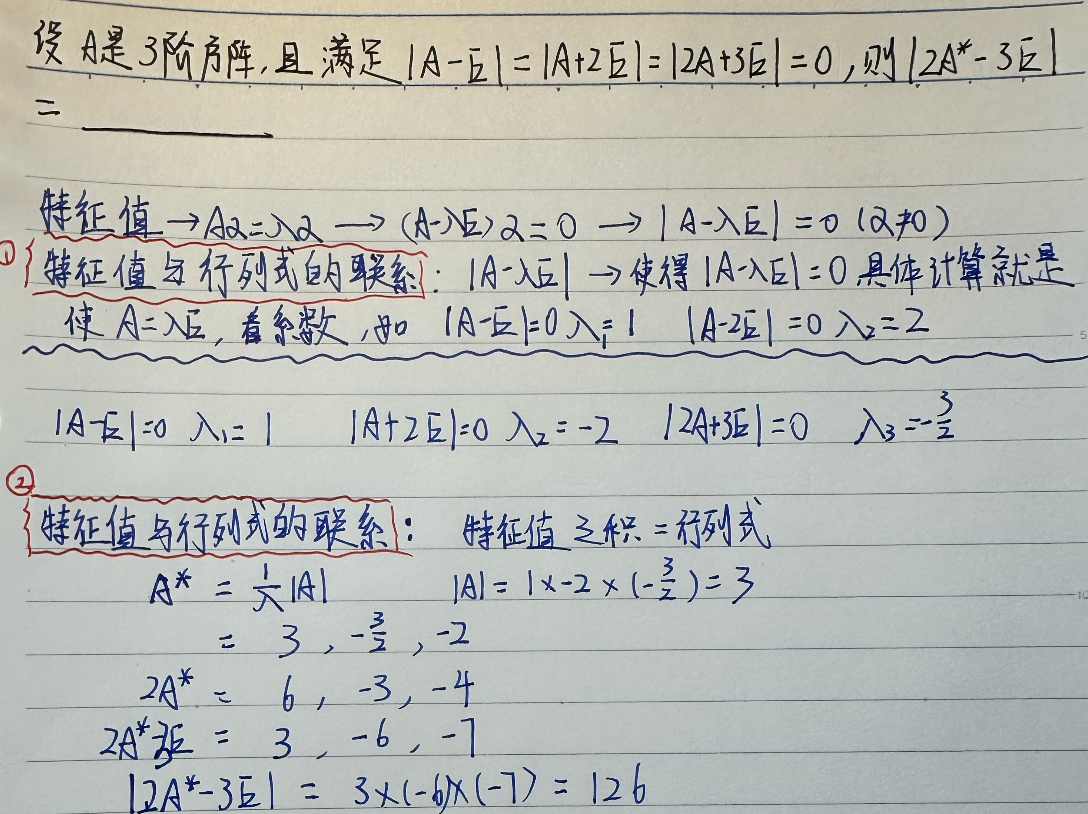 设A是3阶方阵,且满足|A-E|=|A+2E|=|2A+3E|=0,则|2A*-3E|
= ________
特征值→Aα=λα→(A-λE)α=0→|A-λE|=0(α≠0)
① 特征值与行列式的联系: |A-λE|→使得|A-λE|=0具体计算就是
使A=λE,看系数,如 |A-E|=0 λ₁=1 |A-2E|=0 λ₂=2
|A-E|=0 λ₁=1 |A+2E|=0 λ₂=-2 |2A+3E|=0 λ₃=-3/2
②
特征值与行列式的联系: 特征值之积=行列式
A* = 1/λ|A| |A|=1×-2×(-3/2)=3
= 3, -3/2, -2
2A* = 6, -3, -4
2A*-3E = 3, -6, -7
|2A*-3E| = 3×(-6)×(-7) = 126
5
10